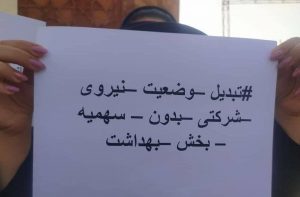 #تبدیل –وضعیت –نیروی
–شرکتی –بدون – سهمیه
– بخش –بهداشت